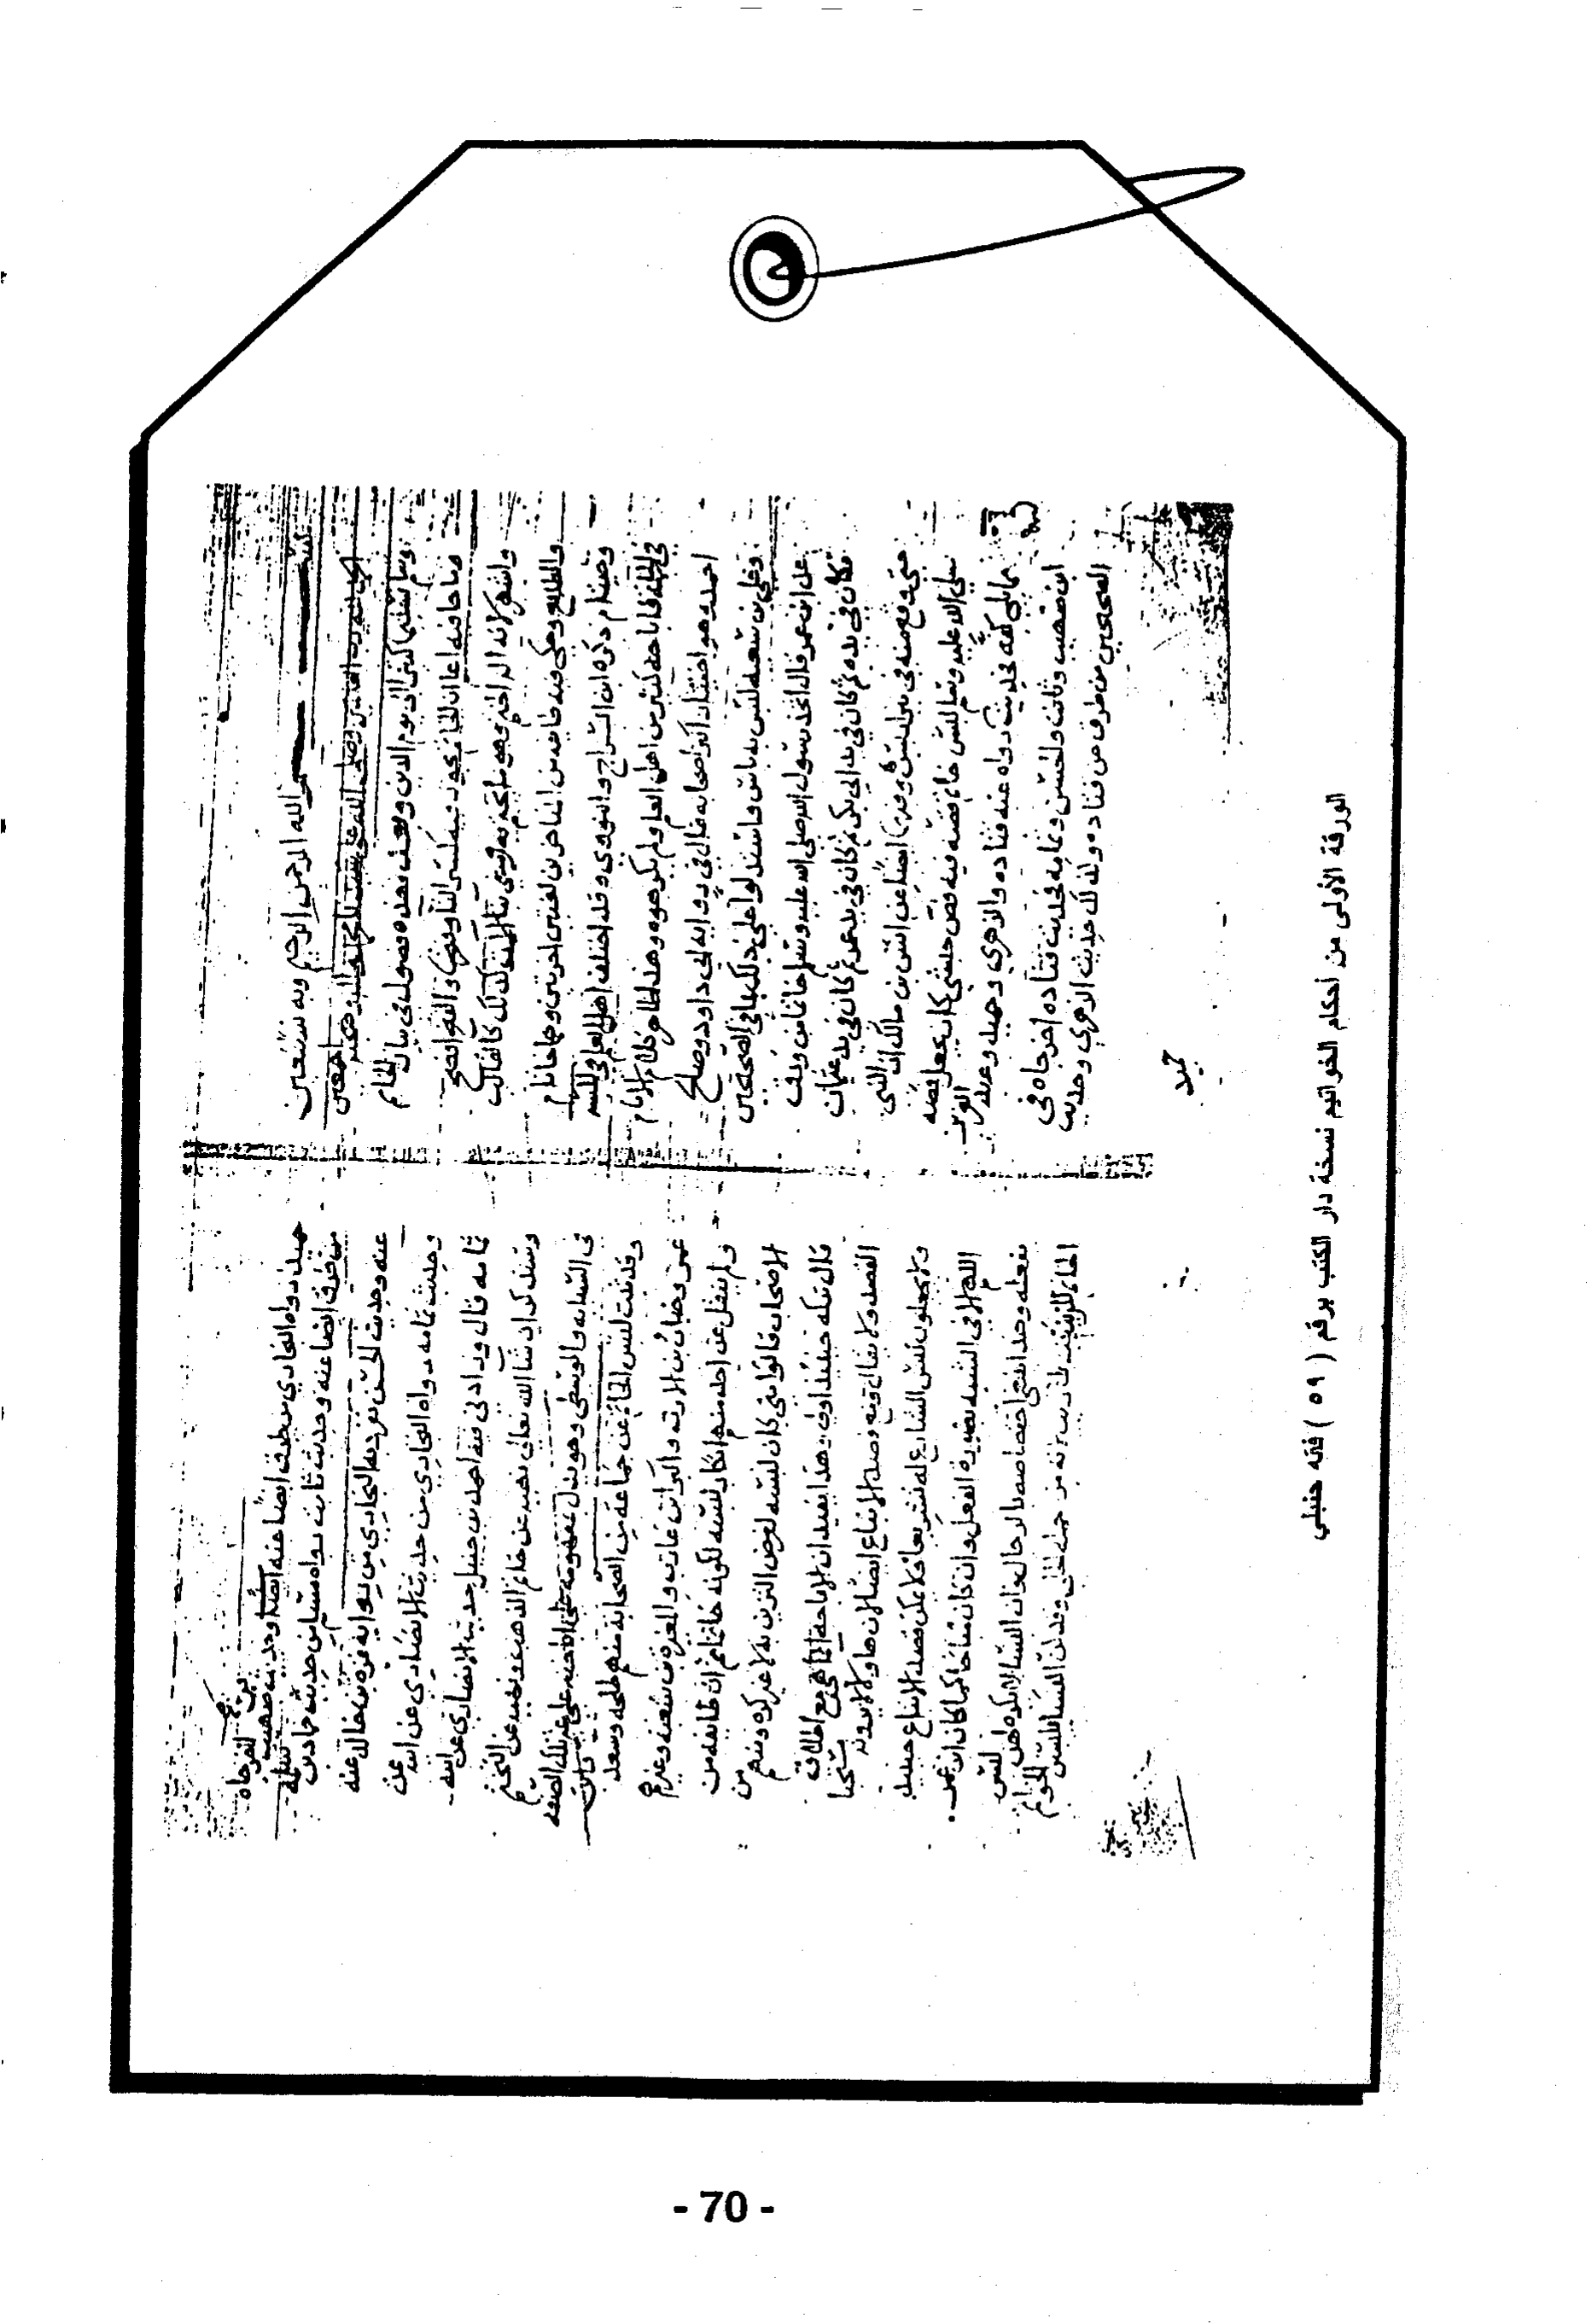 بسم الله الرحمن الرحيم وبه نستعين
الحمد لله رب العالمين وصلى الله على سيدنا محمد وصحبه اجمعين
وسلم تسليما كثيرا الى يوم الدين وبعد فهذه فصول في بيان الخاتم
وما جا فيه اعلم ان الخاتم يجوز فيه كسر التا وفتحها والفتح افصح
واشهر لانه
والطابع وحكي فيه طايفة من المتاخرين لغتين اخرتين وهما خاتام
وخيتام ذكره ابن السراج والنووي وقد اختلف اهل العلم في لبسه
في الجملة فاباحه كثير من اهل العلم ولم يكرهوه وهذا ظاهر كلام الامام
احمد وهو اختيار اكثر اصحابه قال في رواية ابي داود وصالح
وعلي بن سعيد ليس به باس واستدلوا على ذلك بما في الصحيحين
عن ابن عمر قال اتخذ رسول الله صلى الله عليه وسلم خاتما من ورق
فكان في يده ثم كان في يد ابي بكر ثم كان في يد عمر ثم كان في يد عثمان
حتى وقع منه في بير اريس وفيهما ايضا عن انس بن مالك ان النبي
صلى الله عليه وسلم لبس خاتم فضة فيه فص حبشي كان يجعل فصه
مما يلي كفه فحديث رواه عنه قتادة والزهري وحميد وعبد العزيز
ابن صهيب وثابت والحسن وثمامة فحديث قتادة اخرجاه في
الصحيحين من طرق عن قتادة وكذلك حديث الزهري وحديث
حميد
حميد رواه البخاري من طرق ايضا عنه ايضا وحديث
من طرق ايضا عنه وحديث ثابت رواه مسلم من حديث حماد بن سلمة
عنه وحديث الحسن تفرد به البخاري من رواية قرة بن خالد عنه
وحديث ثمامة رواه البخاري من حديث الانصاري عن ابيه عن
ثمامة قال وزادني فيه احمد بن حنبل حديث الانصاري عن ابيه
وسنذكر ان شا الله تعالى نهيه عن خاتم الذهب ونهيه عن التختم
في السبابة والوسطى وهو يدل بمفهومه على اباحته على غير تلك الصفة
وقد ثبت لبس الخاتم عن جماعة من الصحابة منهم طلحة وسعد
عمر وخباب بن الارت والبرا بن عازب والمغيرة بن شعبة وغيرهم
ولم ينقل عن احد منهم انكار لبسه لكونه خاتما ثم ان طايفة من
الاصحاب قالوا متى كان لبسه لغرض التزين به لا غير كره ومنهم من
قال تركه حينئذ اولى وهذا يفيد ان الاباحة انما هي مع اطلاق
القصد ولا يقال
ولا يجعلون لبس الشارع له تشريعا فلا يمكن قصد الاتباع حينئذ
اللهم الا في التشبه بصورة الفعل وان كان مباحا كما كان ابن عمر
يفعله وخذا
الخاتم للزينة
الورقة الأولى من أحكام الخواتيم نسخة دار الكتب برقم ( ٥٩ ) فقه حنبلي
- 70 -